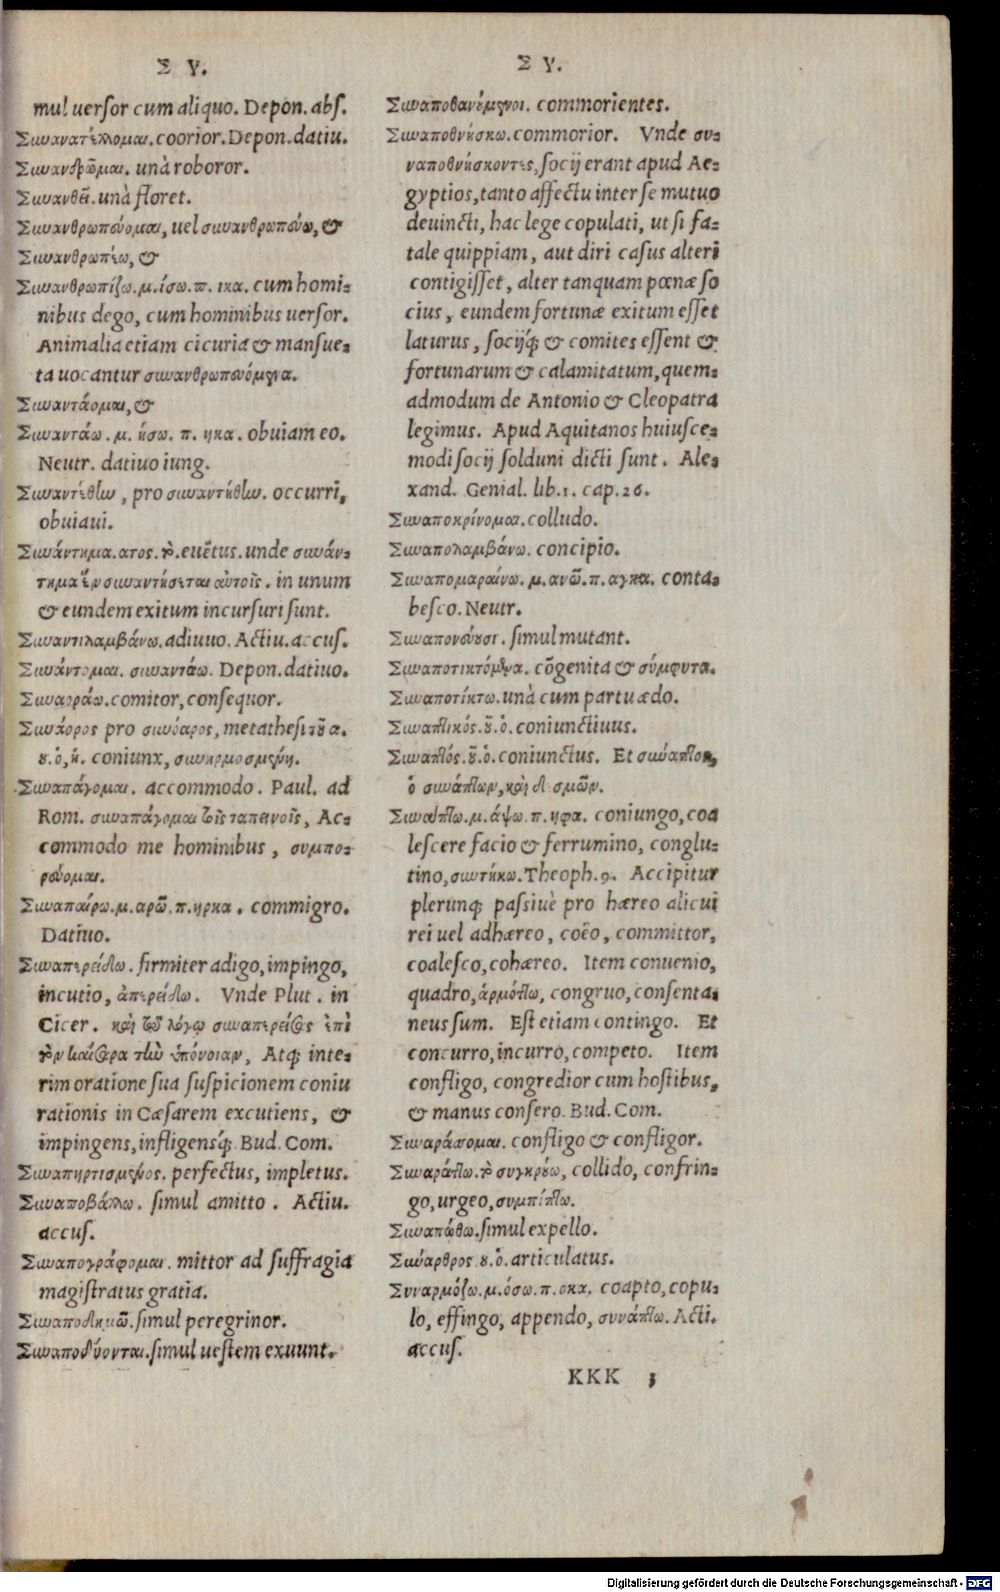 Σ Υ.
mul uersor cum aliquo. Depon. abs.
Συναναστέλλομαι. coorior. Depon. datiu.
Συνανδρῦμαι. unà roboror.
Συνανθεῖ. unà floret.
Συνανθρωπεύομαι, uel συνανθρωπεύω, &
Συνανθρωπέω, &
Συνανθρωπίζω. μ. ίσω. π. ικα. cum homi-
nibus dego, cum hominibus uersor.
Animalia etiam cicuria & mansue-
ta uocantur συνανθρωπευόμενα.
Συναντάομαι, &
Συναντάω. μ. ήσω. π. ηκα. obuiam eo.
Neutr. datiuo iung.
Συναντέθην, pro συναντήθην. occurri,
obuiaui.
Συνάντημα. ατος. τὸ. euẽtus. unde συνάν-
τημα ἓν συναντήσεται αὐτοῖς. in unum
& eundem exitum incursuri sunt.
Συναντιλαμβάνω. adiuuo. Actiu. accus.
Συνάντομαι. συναντάω. Depon. datiuo.
Συναοράω. comitor, consequor.
Συνάορος pro συνόαρος, metathesi τοῦ α.
ου. ὁ, ἡ. coniunx, συνηρμοσμένη.
Συναπάγομαι. accommodo. Paul. ad
Rom. συναπάγομαι τοῖς ταπεινοῖς, Ac-
commodo me hominibus, συμπο-
ρεύομαι.
Συναπαίρω. μ. αρῶ. π. ηρκα. commigro.
Datiuo.
Συναπερείδω. firmiter adigo, impingo,
incutio, ἀπερείδω. Vnde Plut. in
Cicer. καὶ τῷ λόγῳ συναπερείσας ἐπὶ
τὸν καίσαρα τὴν ὑπόνοιαν, Atq; inte-
rim oratione sua suspicionem coniu
rationis in Cæsarem excutiens, &
impingens, infligensq́;. Bud. Com.
Συναπηρτισμένος. perfectus, impletus.
Συναποβάλλω. simul amitto. Actiu.
accus.
Συναπογράφομαι. mittor ad suffragia
magistratus gratia.
Συναποδημῶ. simul peregrinor.
Συναποδύονται. simul uestem exuunt.
Σ Υ.
Συναποθανούμενοι. commorientes.
Συναποθνήσκω. commorior. Vnde συ-
ναποθνήσκοντες, socij erant apud Ae-
gyptios, tanto affectu inter se mutuo
deuincti, hac lege copulati, ut si fa-
tale quippiam, aut diri casus alteri
contigisset, alter tanquam pœnæ so
cius, eundem fortunæ exitum esset
laturus, socijq́; & comites essent &
fortunarum & calamitatum, quem-
admodum de Antonio & Cleopatra
legimus. Apud Aquitanos huiusce-
modi socij solduni dicti sunt. Ale-
xand. Genial. lib. 1. cap. 26.
Συναποκρίνομαι. colludo.
Συναπολαμβάνω. concipio.
Συναπομαραίνω. μ. ανῶ. π. αγκα. conta-
besco. Neutr.
Συναπονεύουσι. simul mutant.
Συναποτικτόμενα. cõgenita & σύμφυτα.
Συναποτίκτω. unà cum partu ædo.
Συναπτικός. οῦ. ὁ. coniunctiuus.
Συναπτός. οῦ. ὁ. coniunctus. Et συνάπτον,
ὁ συνάπτων, καὶ δεσμῶν.
Συνάπτω. μ. άψω. π. ηφα. coniungo, coa
lescere facio & ferrumino, conglu-
tino, συντήκω. Theoph. 9. Accipitur
plerunq; passiuè pro hæreo alicui
rei uel adhæreo, coëo, committor,
coalesco, cohæreo. Item conuenio,
quadro, ἁρμόττω, congruo, consenta-
neus sum. Est etiam contingo. Et
concurro, incurro, competo. Item
confligo, congredior cum hostibus,
& manus consero. Bud. Com.
Συναράσσομαι. confligo & confligor.
Συναράττω. τὸ συγκρούω, collido, confrin-
go, urgeo, συμπίπτω.
Συναπώθω. simul expello.
Σαύαρθρος ου. ὁ. articulatus.
Συναρμόζω. μ. όσω. π. οκα. coapto, copu-
lo, effingo, appendo, συνάπτω. Acti.
accus.
KKK 3
Digitalisierung gefördert durch die Deutsche Forschungsgemeinschaft - DFG